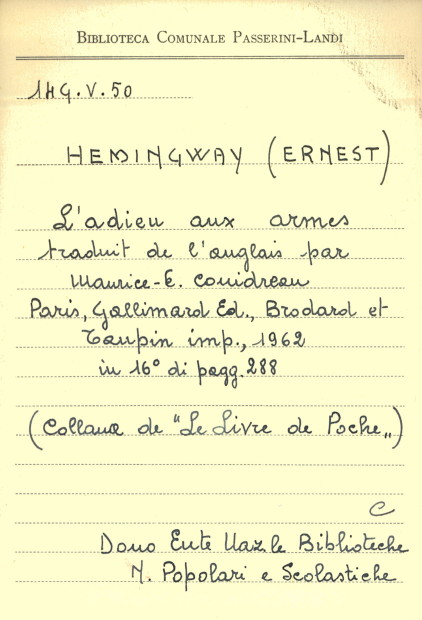 BIBLIOTECA COMUNALE PASSERINI-LANDI
1HG.V.50
HEMINGWAY (ERNEST)
L'adieu aux armes
traduit de l'anglais par
Maurice-E. Couidreau
Paris, Gallimard Ed., Brodard et
Taupin imp., 1962
in 16° di pagg. 288
(Collana de "Le Livre de Poche„)
C
Dono Ente Naz.le Biblioteche
N. Popolari e Scolastiche